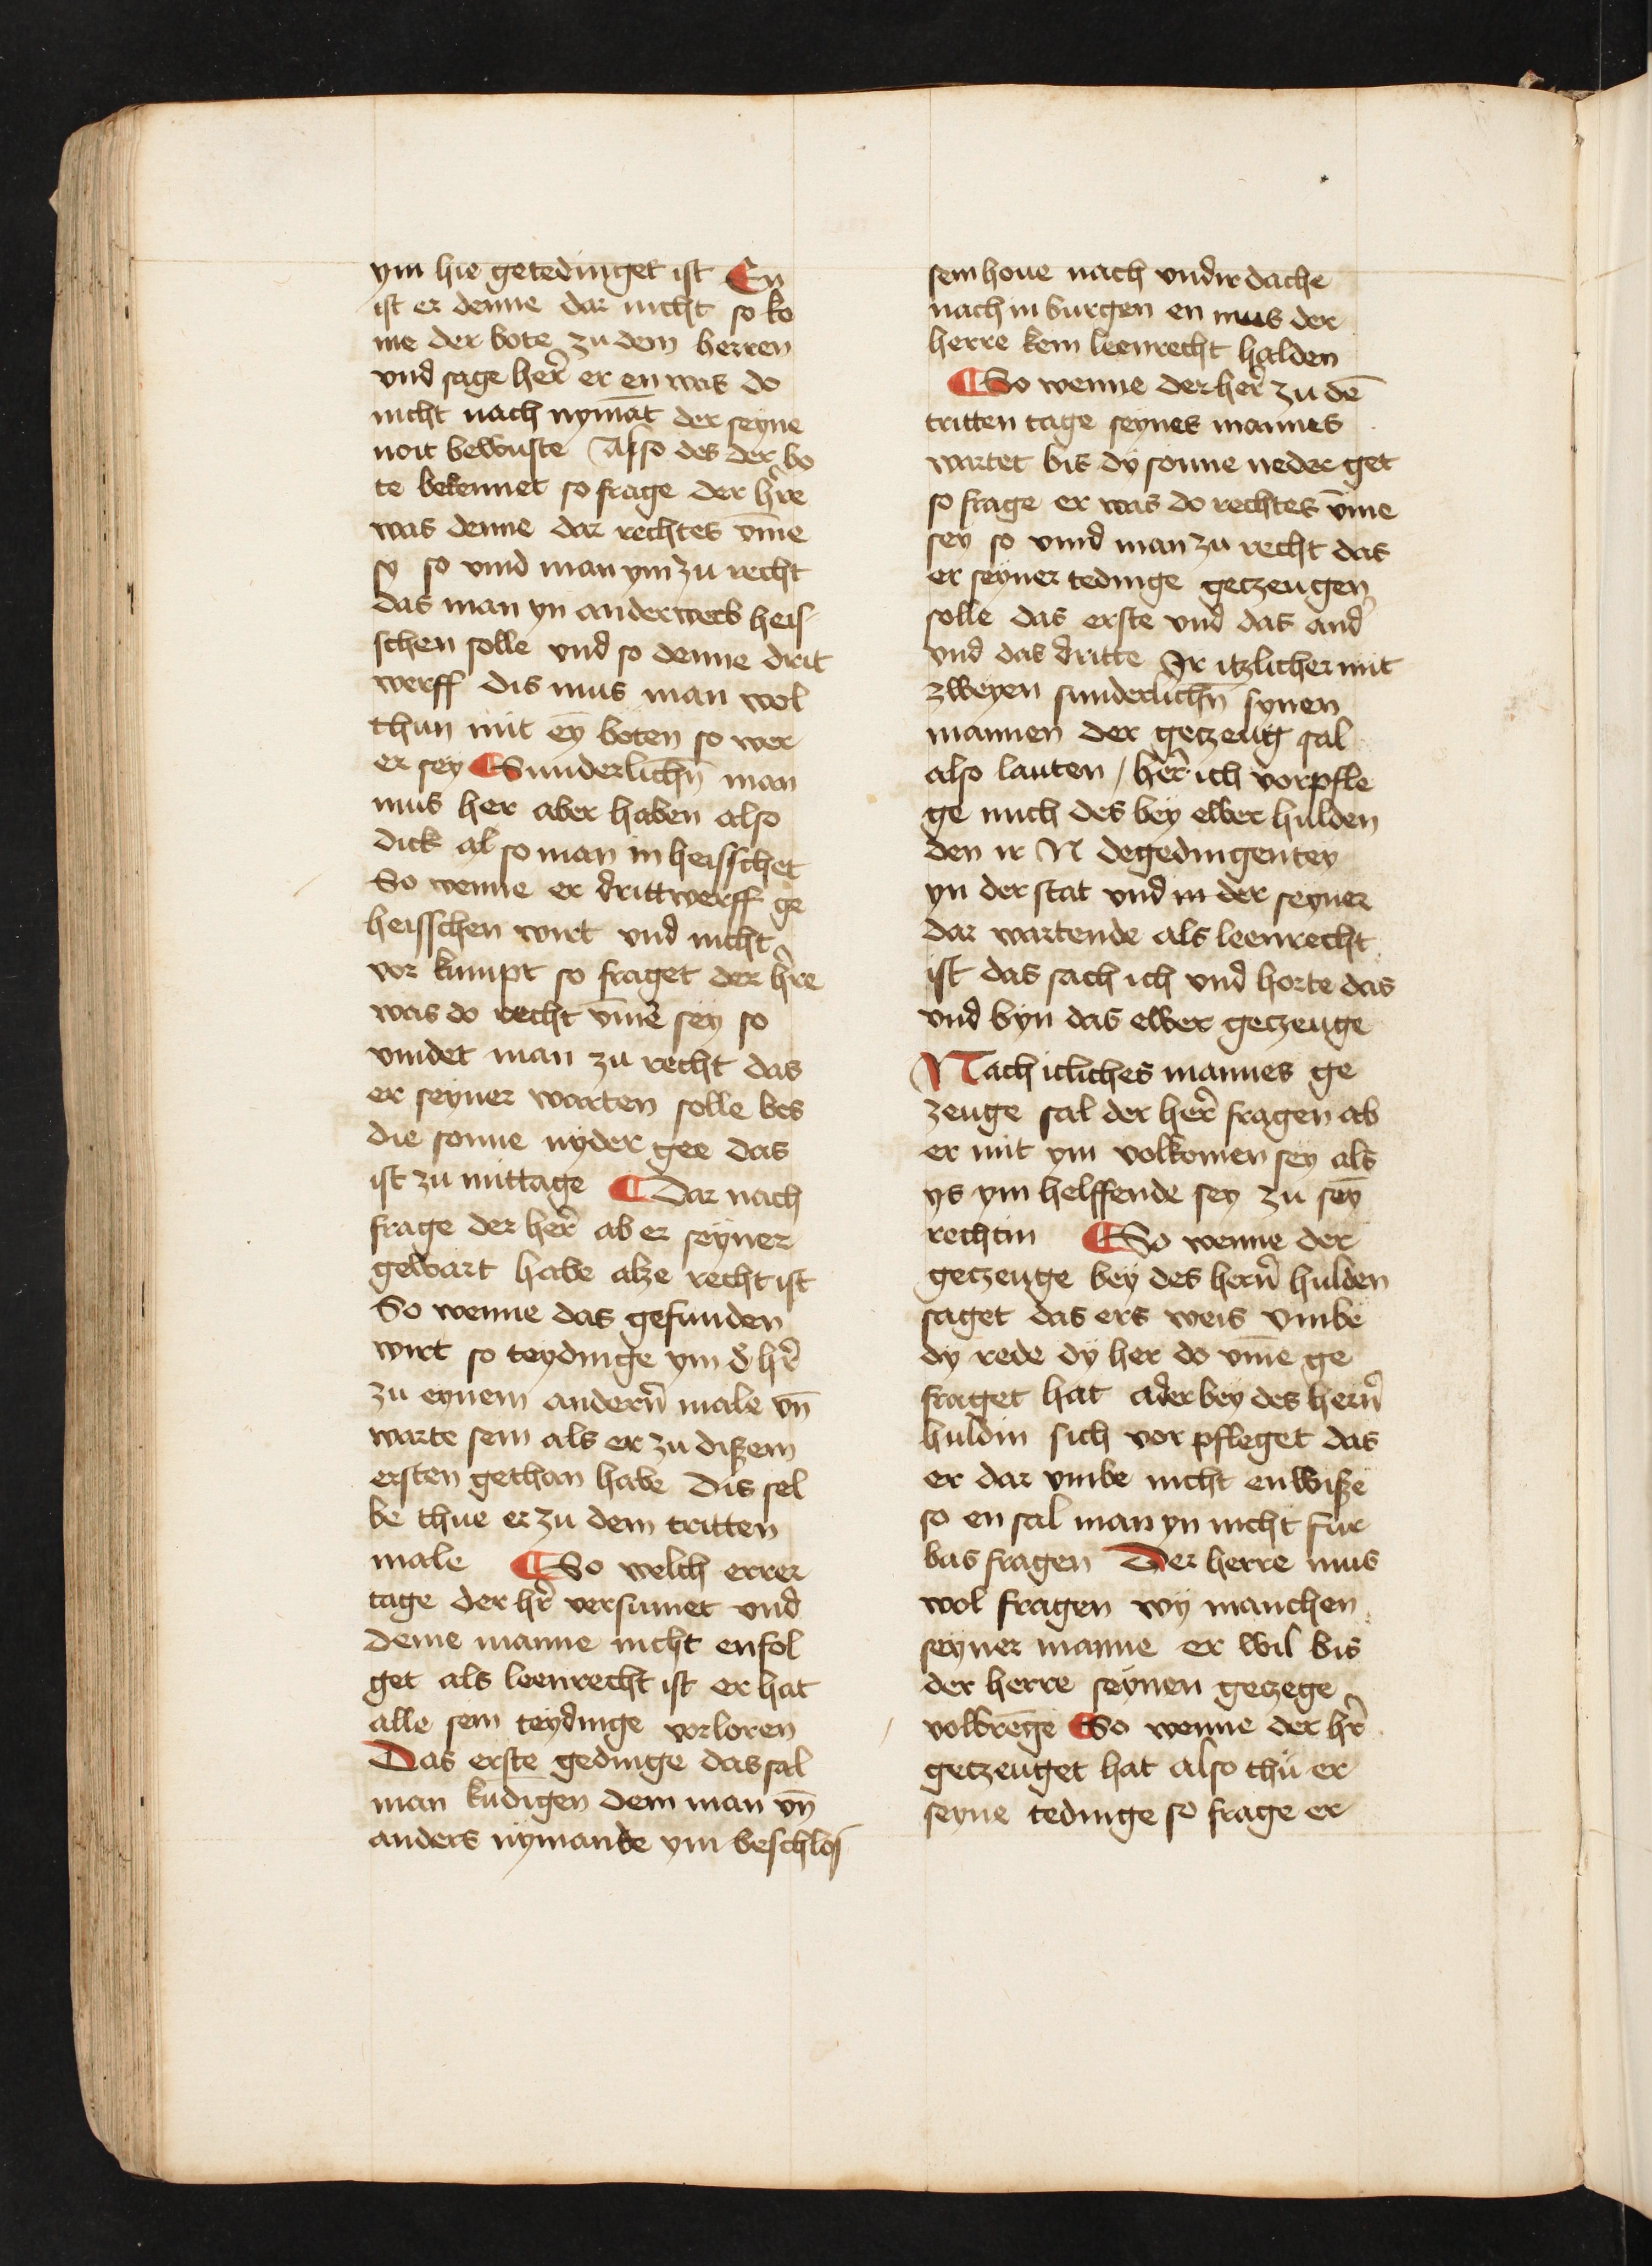 ym hie getedinget ist En
ist er denne dar nicht so ko
me der bote zu dem herren
vnd sage her̄ er en was do
nicht nach nymāt der seyne
nort bewuste Also des der bo
te bekennet so frage der h̄re
was denne dar rechtes vm̄e
sy so vind man ym zu recht
das man yn anderwerb heis-
schen solle vnd so denne drit
werff dis mus man wol
thun mit ey̅ boten so wer
er sey ¶ Sunderlichn̄ man
mus her aber haben also
dick also man in heisschet
So wenne er drittwerff ge
heisschen wirt vnd nicht
vor kumpt so fraget der h̄re
was do recht vm̄e sey so
vindet man zu recht das
er seyner warten solle bes
die sonne nyder gee das
ist zu mittage ¶ Dar nach
frage der her̄ ab er seyner
gewart habe alze recht ist
So wenne das gefunden
wirt so teydinge ym d̄ hr̄
zu eynem andern̄ male vn̄
warte sein als er zu dißem
ersten gethan habe Dis sel
be thue er zu dem tritten
male ¶ So welch errer
tage der hr̄ versumet vnd
deme manne nicht enfol
get als leenrecht ist er hat
alle sein teydinge vorloren
Das erste gedinge das sal
man kūdigen dem man vn̄
anders nymande ym beschlos
sem houe nach vndir dache
nach in burgen en mus der
herre kein leenrecht halden
¶ So wenne der her̄ zu dē
tritten tage seynes mannes
wartet bis dy sonne neder get
so frage er was do rechtes vm̄e
sey so vind man zu recht das
er seyner tedinge getzeugen
solle das erste vnd das and̄
vnd das dritte Ir itzlicher mit
zweyen sunderlichn̄ synen
mannen der getzeug sal
also lauten / her̄ ich vorpfle
ge mich des bey ewer hulden
den ir N degedingentey
yn der stat vnd in der seyner
dar wartende als leenrecht
ist das sach ich vnd horte das
vnd byn das ewer getzeuge
Nach icliches mannes ge
zeuge sal der her̄ fragen ab
er mit ym volkomen sey als
ys ym helffende sey zu sey̅
rechtin ¶ So wenne der
getzeuge bey des hern̄ hulden
saget das ers weis vmbe
dy rede dy her do vm̄e ge
fraget hat ader bey des hern̄
huldin sich vor pfleget das
er dar vmbe nicht enwiße
so en sal man yn nicht fur
bas fragen Der herre mus
wol fragen wy manchen
seyner manne er wil bis
der herre seynen getzege
volbrēge ¶ So wenne der hr̄
getzeuget hat also thu er
seyne tedinge so frage er